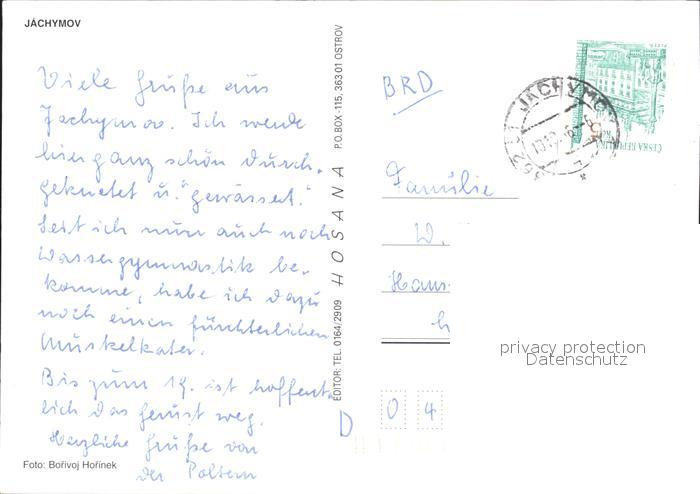 JÁCHYMOV
Viele Grüße aus
Jachymov. Ich werde
hier ganz schön durch-
geknetet u. "gewässert."
Seit ich nun auch noch
Wassergymnastik be-
komme, habe ich dazu
noch einen fürchterlichen
Muskelkater.
Bis zum 19. ist hoffent-
lich das Gerüst weg.
Herzliche Grüße von
der
Foto: Bořivoj Hořínek
EDITOR: TEL. 0164/2909 HOSANA P.O.BOX -115, 36301 OSTROV
BRD
JÁCHYMOV
ČESKÁ REPUBLIKA
Familie
W.
Haus-
h
D 04
privacy protection
Datenschutz